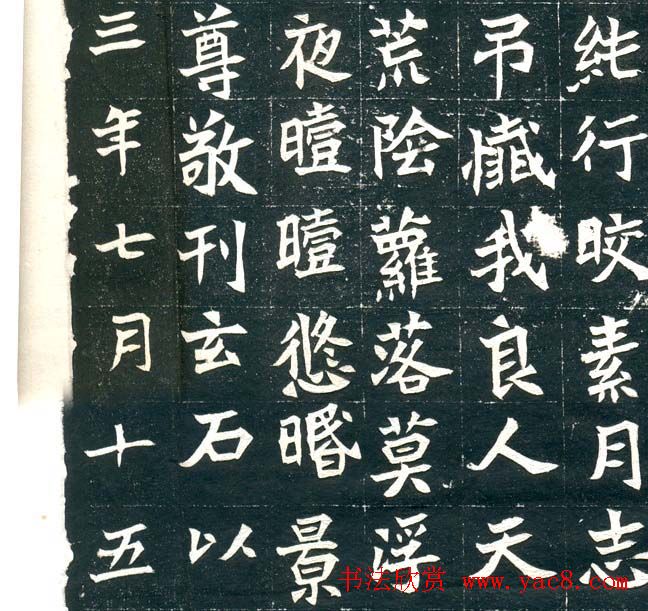 純行晈素月志
吊我良人天
荒陰蘿落莫浮
夜曀曀景
尊敬刊玄石以
三年七月十五
书法欣赏 www.yac8.com